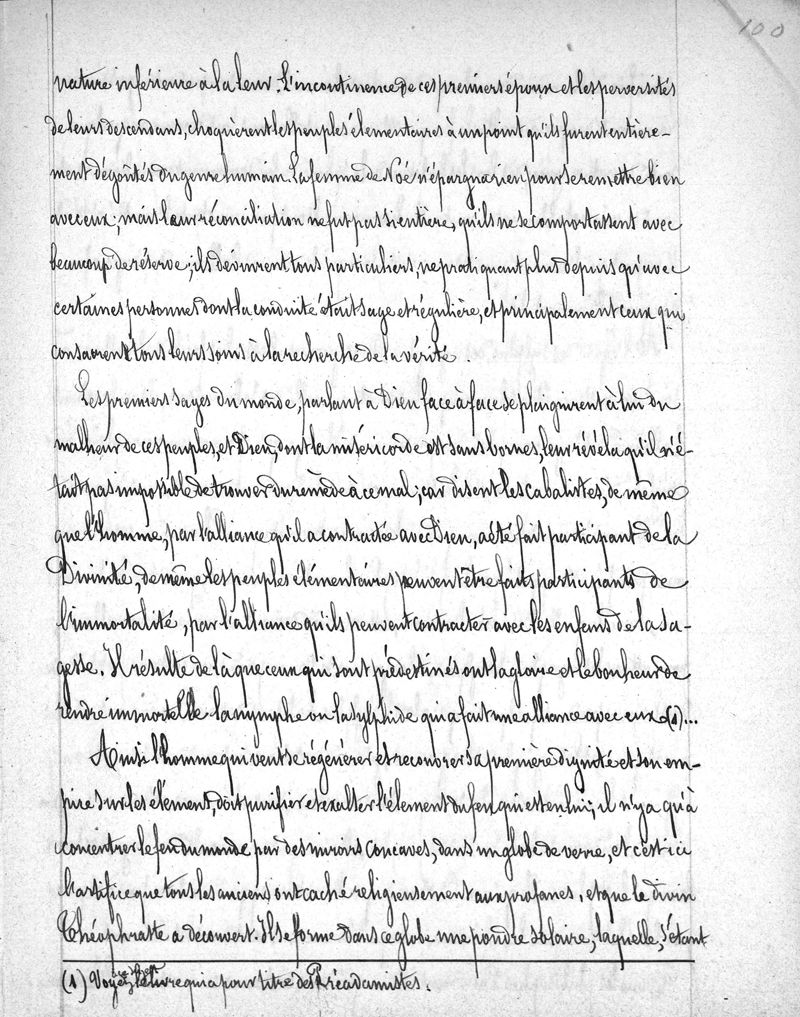 100
nature inférieure à la leur. L'incontinence de ces premiers époux et les perversités
de leurs descendans, choquèrent les peuples élementaires à un point qu'ils furent entière-
ment dégoûtés du genre humain. La femme de Noé n'épargna rien pour se remettre bien
avec eux; mais leur réconciliation ne fut pas si entière, qu'ils ne se comportassent avec
beaucoup de réserve; ils devinrent tous particuliers, ne pratiquant plus depuis qu'avec
certaines personnes dont la conduite était sage et régulière, et principalement ceux qui
consacrent tous leurs soins à la recherche de la vérité.
Les premiers sages du monde, parlant à Dieu face à face se plaignirent à lui du
malheur de ces peuples, et Dieu, dont la miséricorde est sans bornes, leur révéla qu'il n'é-
tait pas impossible de trouver du remède à ce mal; car disent les cabalistes, de même
que l'homme, par l'alliance qu'il a contractée avec Dieu, a été fait participant de la
Divinité, de même les peuples élémentaires peuvent être faits participants de
l'immortalité, par l'alliance qu'ils peuvent contracter avec les enfans de la sa-
gesse. Il résulte de là que ceux qui sont prédestinés ont la gloire et le bonheur de
rendre immortelle la nymphe ou la sylphide qui a fait une alliance avec eux (1)...
Ainsi l'homme qui veut se régénérer et recouvrer sa première dignité et son em-
pire sur les élément, doit purifier et exalter l'élément du feu qui est en lui; il n'y a qu'à
concentrer le feu du monde par des miroirs concaves, dans un globe de verre, et c'est ici
l'artifice que tous les anciens ont caché religieusement aux profanes, et que le divin
Théophraste a découvert. Il se forme dans ce globe une poudre solaire, laquelle, s'étant
(1) Voyez le livre qui a pour titre des Préadamistes.